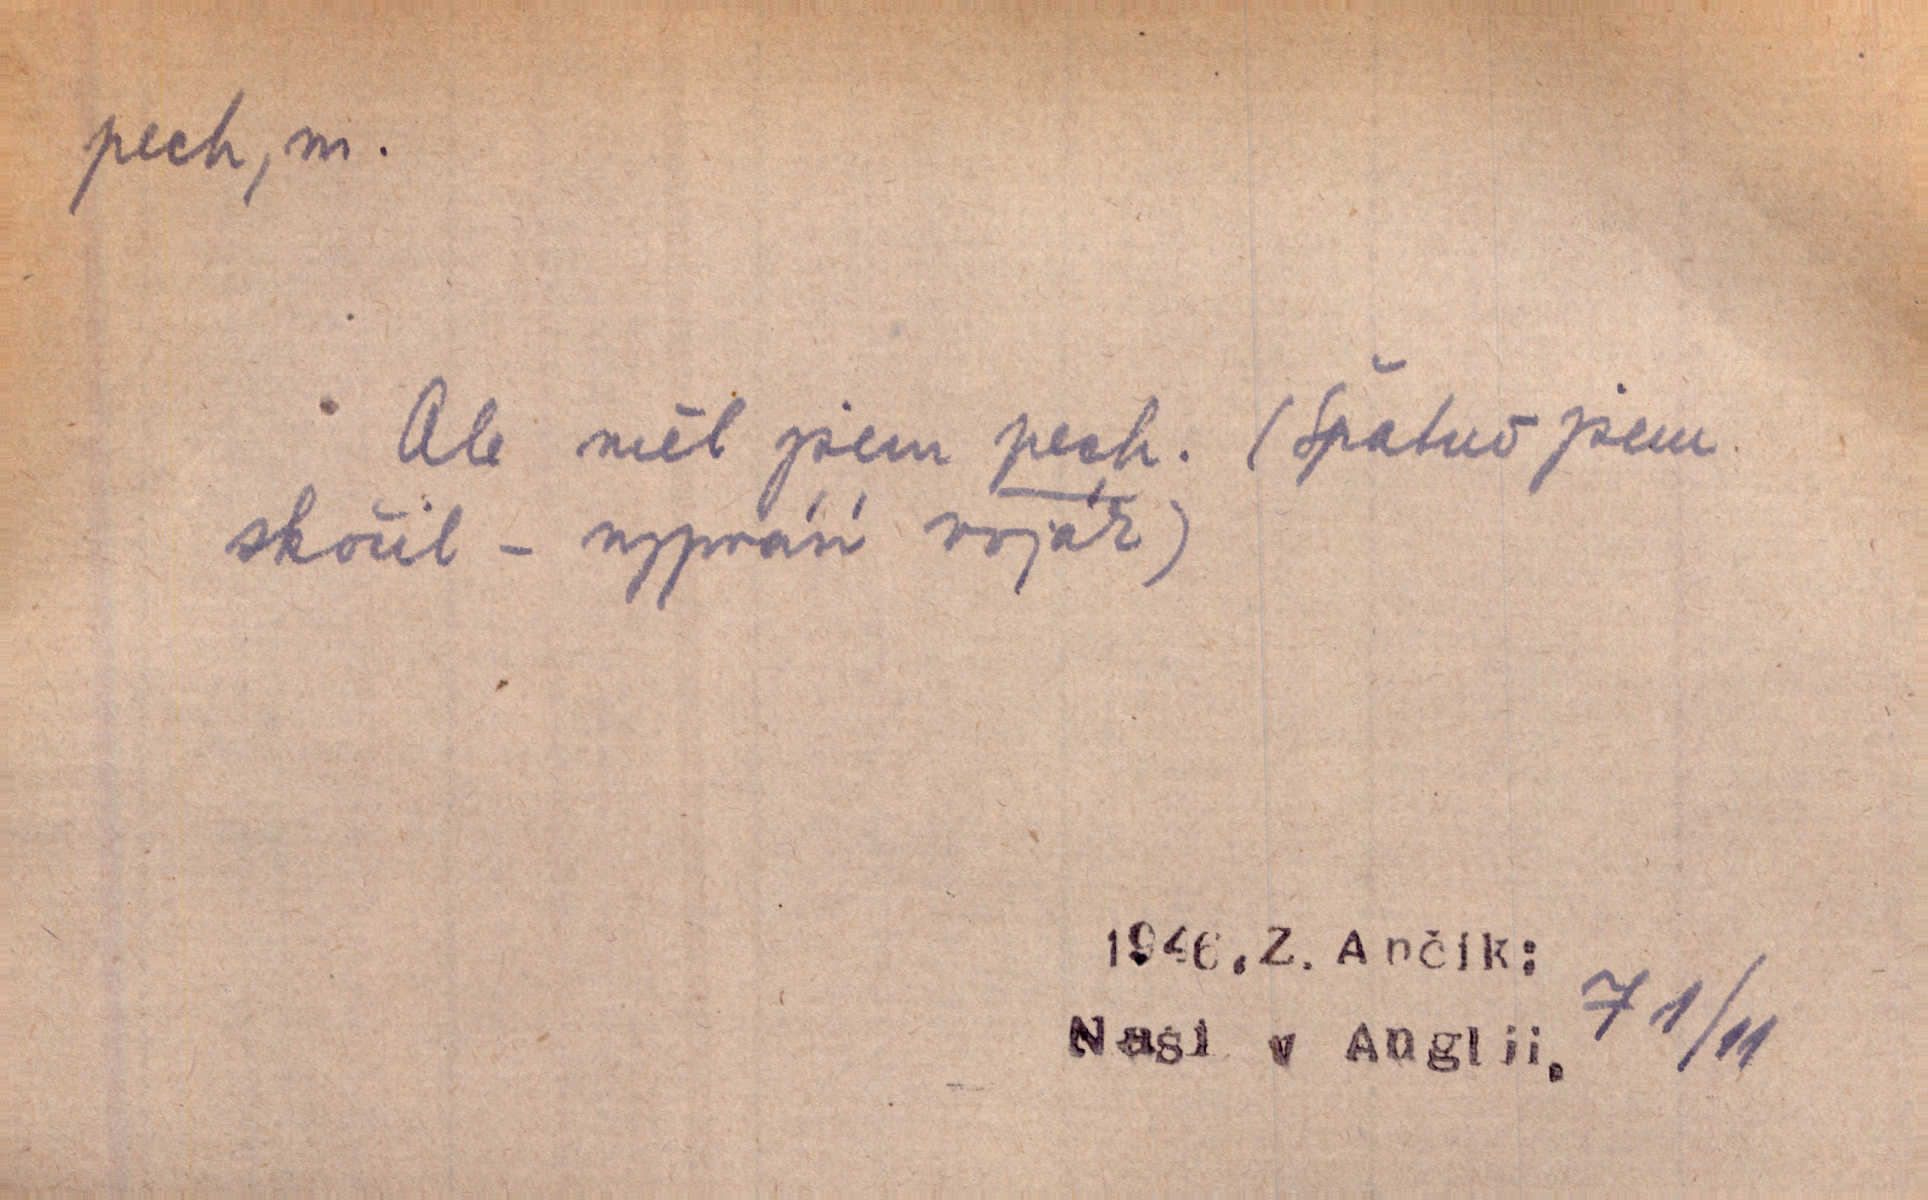 pech, m.
Ale měl jsem pech. (Špatně jsem
skočil - vypráví voják)
1946. Z. Ančík:
Naši v Anglii. 71/11